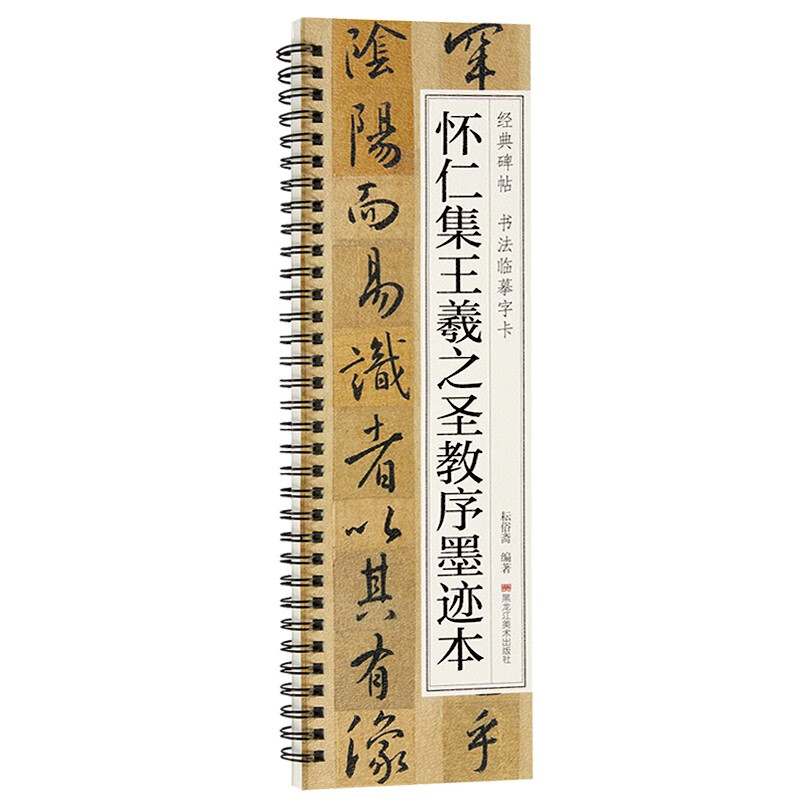 经典碑帖 书法临摹字卡
耘俗斋 编著
黑龙江美术出版社
怀仁集王羲之圣教序墨迹本
罕
乎
陰陽而易識者以其有像